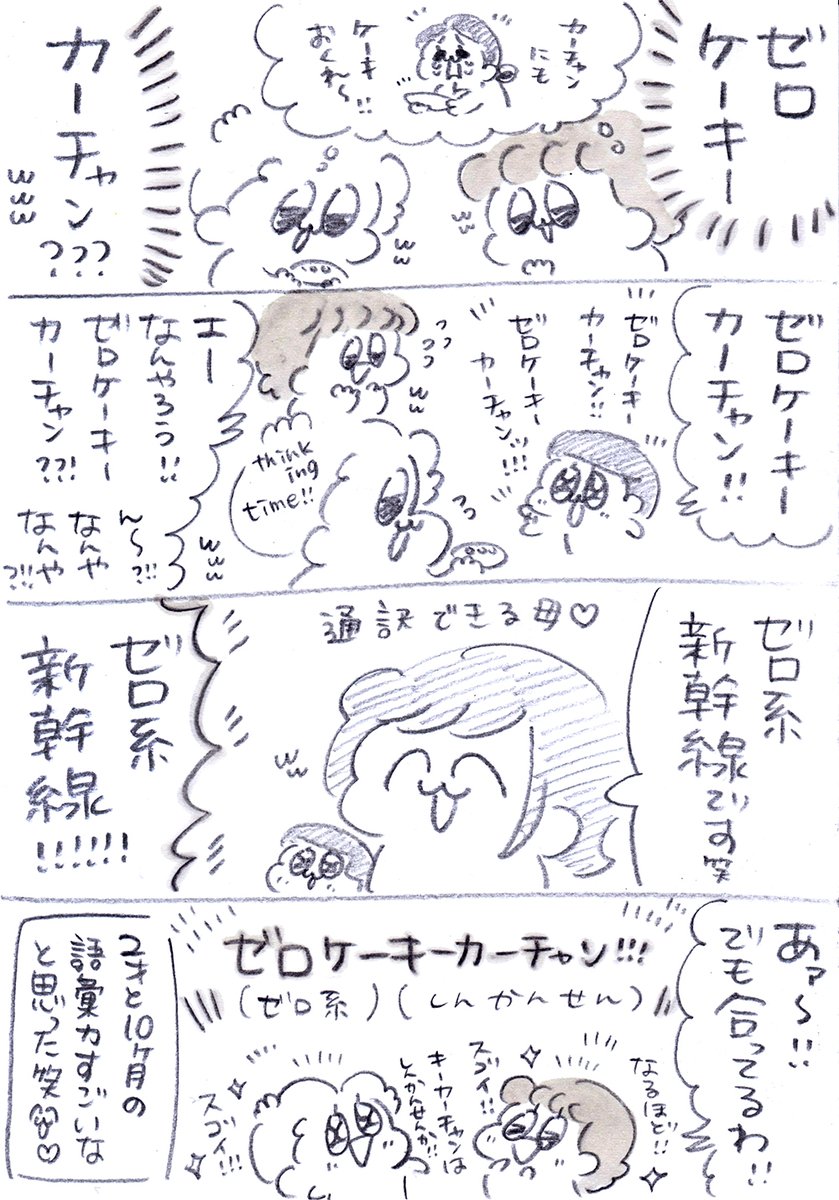 ゼロ
ケーキー
カーチャン
にも
ケーキ
おくれ〜!!
カーチャン???
ゼロケーキー
カーチャン!!
ゼロケーキー
カーチャン!!
ゼロケーキー
カーチャンッ!!!
think
ing
time!!
エー
なんやろう!!
ゼロケーキー
カーチャン??!
ん〜?!!
なんや
なんや?!!
ゼロ系
新幹線です笑
通訳できる母♡
ゼロ系
新幹線!!!!!!
あァ〜!!
でも合ってるわ!!
ゼロケーキーカーチャン!!!
(ゼロ系)(しんかんせん)
なるほど!!
スゴイ!!
キーカーチャンは
しんかんせんか!!
スゴイ!!!
2才と10ヶ月の
語彙力すごいな
と思った笑♡